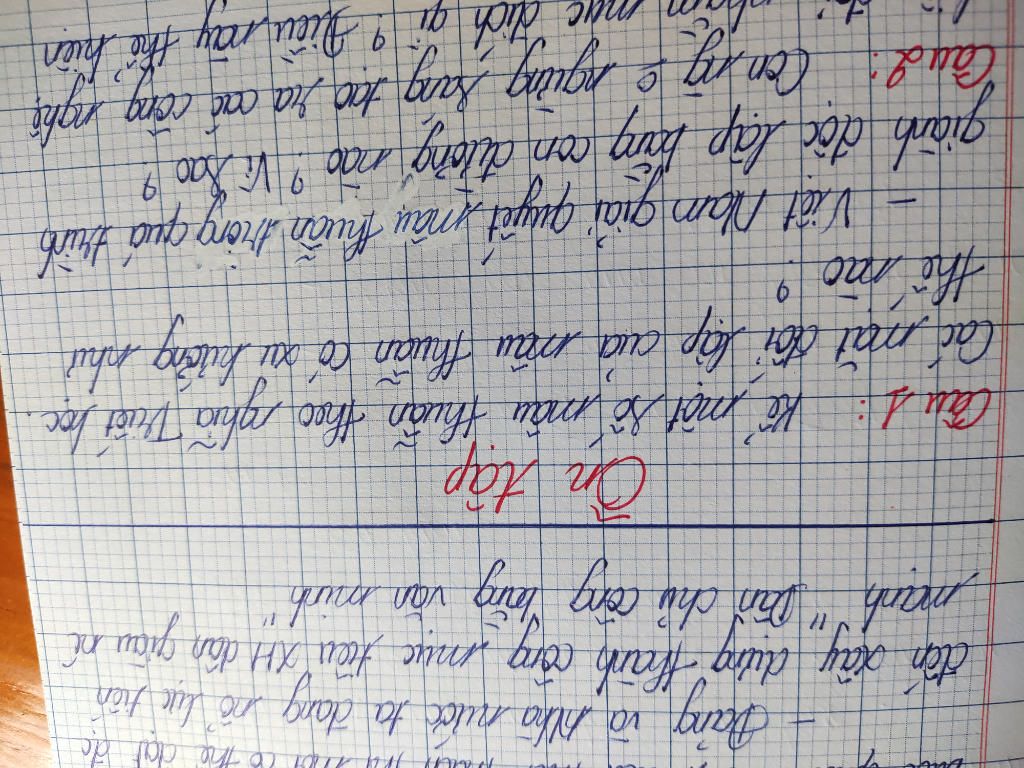 có thể đạt đc
- Đảng và Nhà nước ta đang nỗ lực tiến
đến xây dựng thành công mục tiêu XH dân giàu nc
mạnh "Dân chủ công bằng văn minh"
Ôn tập
Câu 1: Kể một số mâu thuẫn theo nghĩa Triết học.
Các mặt đối lập của mâu thuẫn có xu hướng như
thế nào?
- Việt Nam giải quyết mâu thuẫn trong quá trình
giành độc lập bằng con đường nào? Vì sao?
Câu 2: Con ng ngừng sáng tạo ra các công nghệ
mục đích gì? Điều này thể hiện